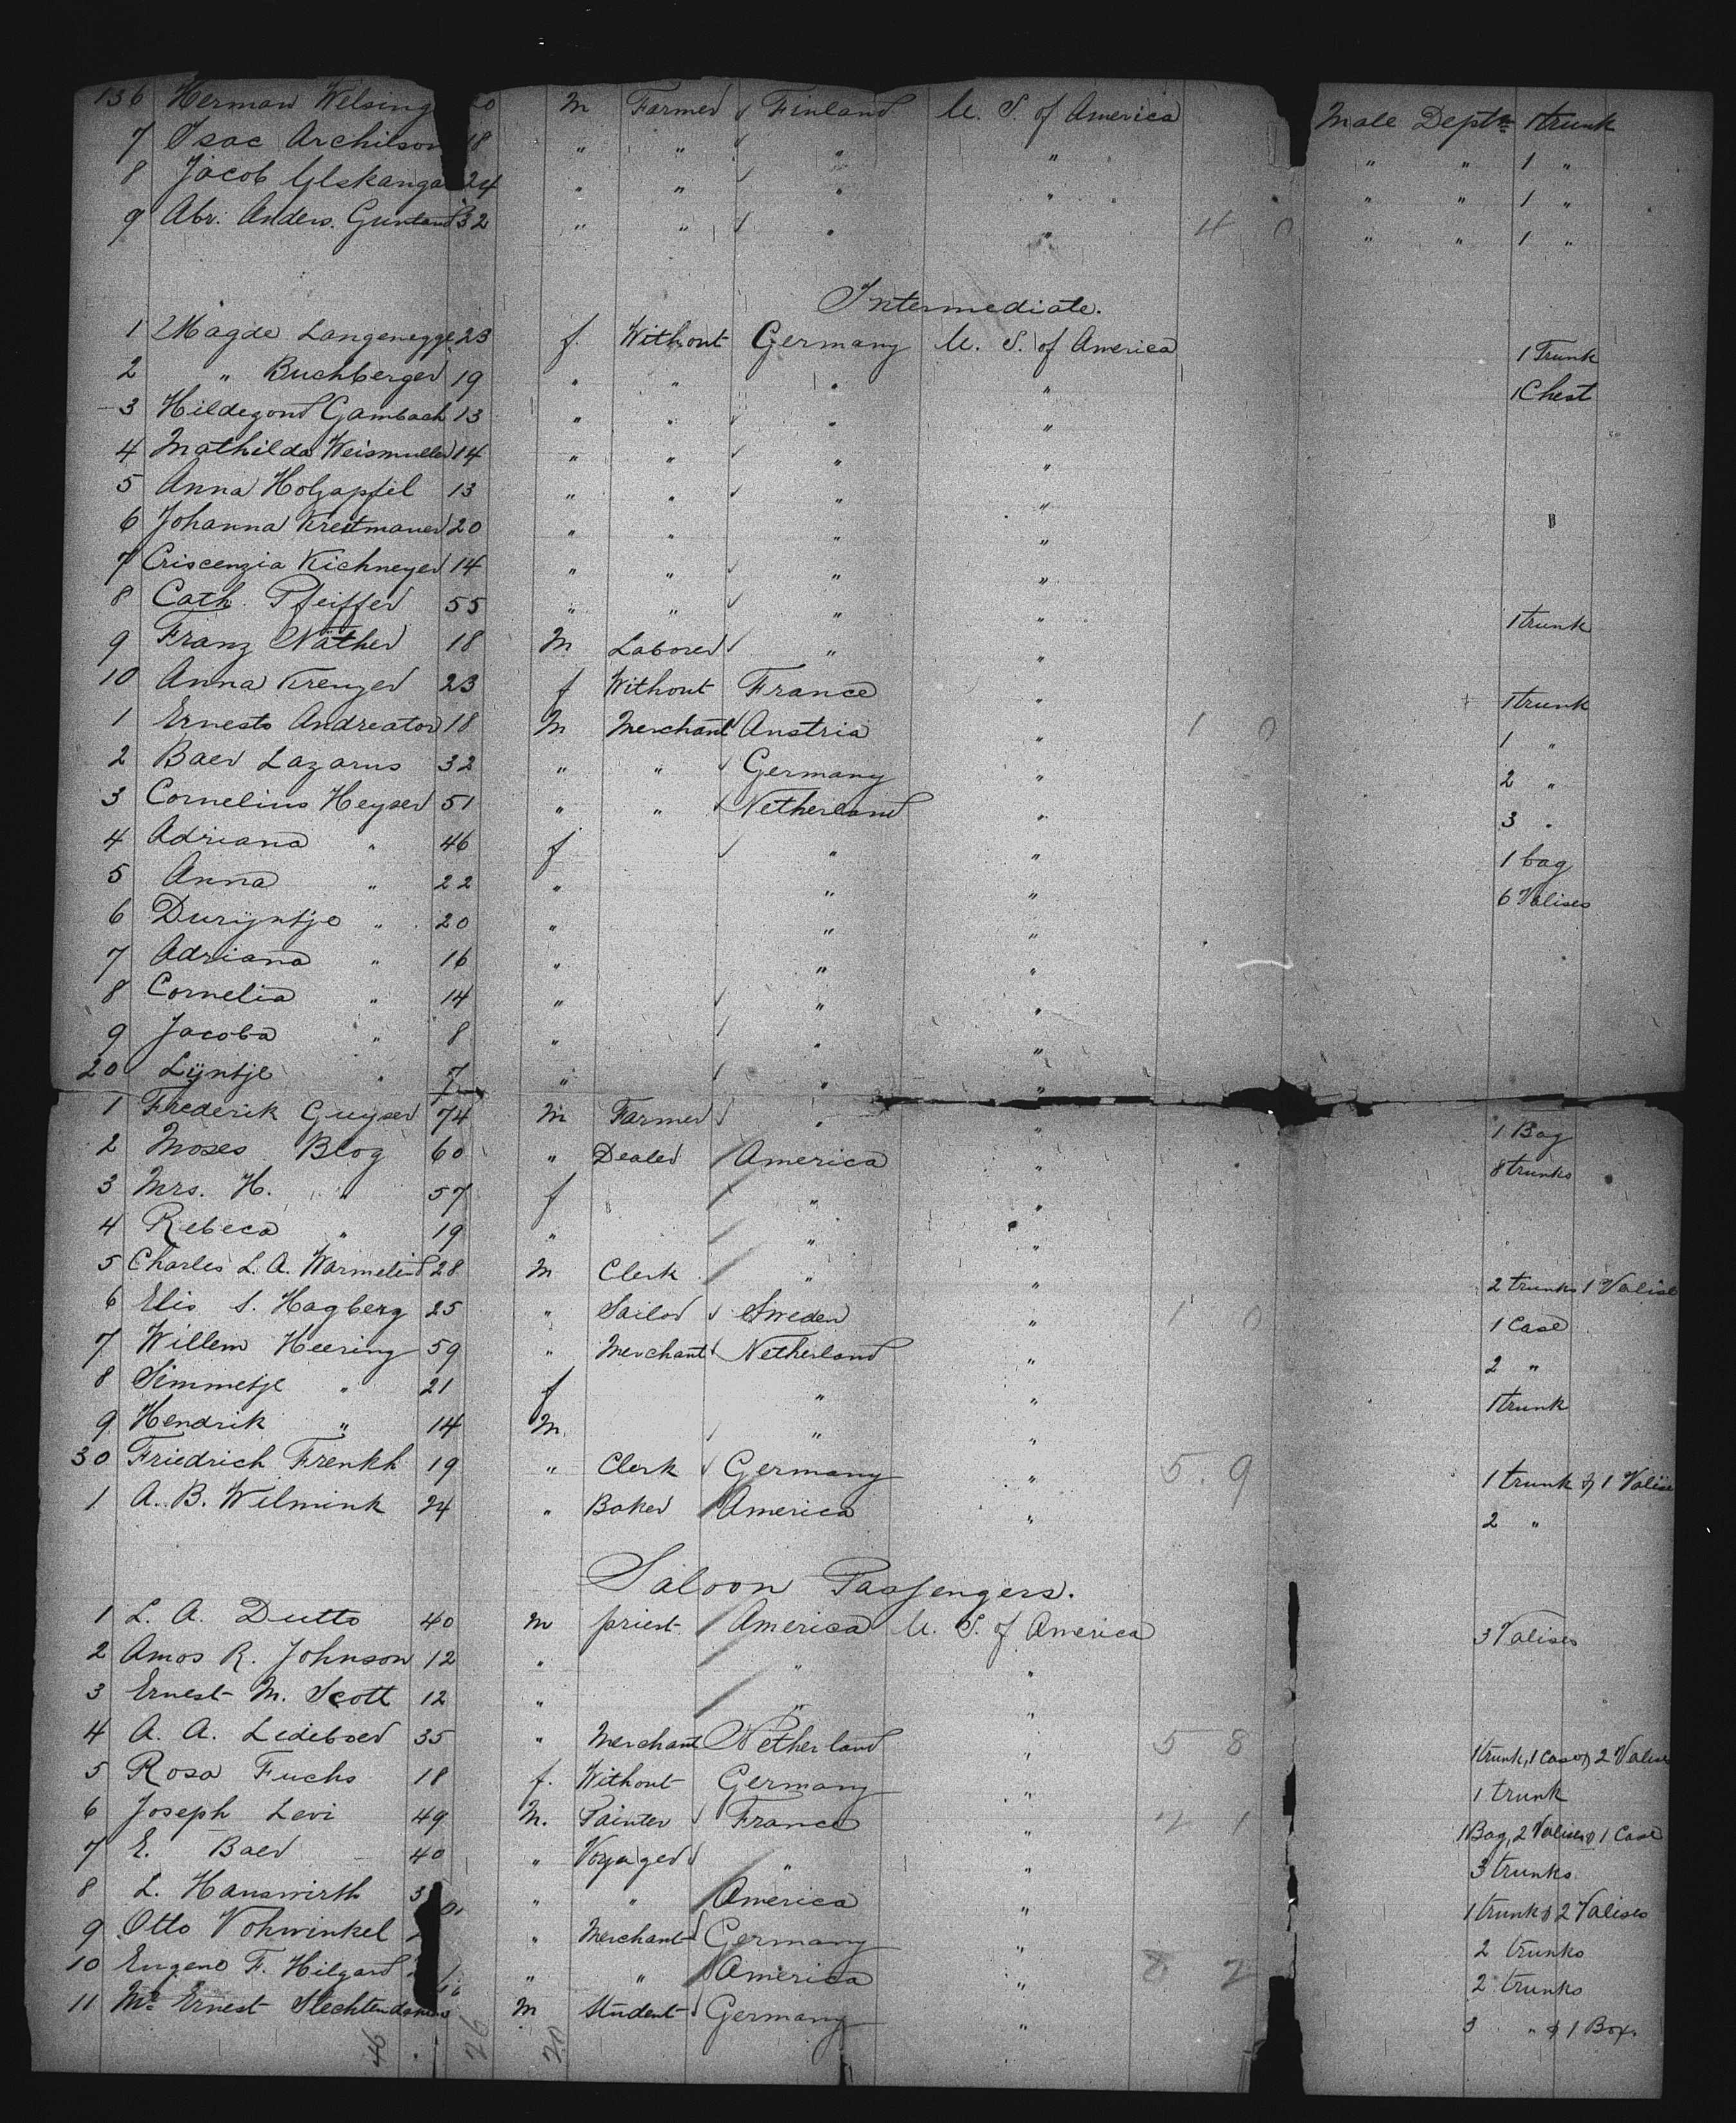 136 Herman Welsing 20 m Farmer Finland U. S. of America Male Deptm 1 trunk
7 Isac Archilson 18 " " " " " " 1 "
8 Jacob Ylskanga 24 " " " " " " 1 "
9 Abr. Anders. Guntand 32 " " " " 4 0 " " 1 "
Intermediate.
1 Magde Langenegge 23 f. Without Germany U. S. of America 1 Trunk
2 " Buchberger 19 " " " " 1 Chest
3 Hildegond Gambach 13 " " " "
4 Mathilda Weismuller 14 " " " "
5 Anna Holzapfel 13 " " " "
6 Johanna Kreitmaner 20 " " " " "
7 Criscenzia Kichneyer 14 " " " "
8 Cath. Pfeiffer 55 " " " " 1 trunk
9 Franz Näther 18 m Laborer " "
10 Anna Krenzer 23 f Without France " 1 trunk
1 Ernesto Andreator 18 m Merchant Austria " 1 0 1 "
2 Baer Lazarus 32 " " Germany " 2 "
3 Cornelius Heyser 51 " " Netherland " 3 "
4 Adriana " 46 f " " 1 bag
5 Anna " 22 " " " 6 Valises
6 Durijntje " 20 " " "
7 Adriana " 16 " " "
8 Cornelia " 14 " " "
9 Jacoba " 8 " " "
20 Lijntje " 7 " " "
1 Frederik Guyser 74 m Farmer " " 1 Bag
2 Moses Blog 60 " Dealer America " 8 trunks
3 Mrs. H. " 57 f " "
4 Rebeca " 19 " " "
5 Charles L. A. Warmelin 28 m Clerk " " 2 trunks 1 Valise
6 Elis S. Hagberg 25 " Sailor Sweden " 1 0 1 Case
7 Willem Heering 59 " Merchant Netherland " 2 "
8 Simmetje " 21 f " " 1 trunk
9 Hendrik " 14 m " "
30 Friedrich Frenkh 19 " Clerk Germany " 5 9 1 trunk & 1 Valise
1 A. B. Wilmink 24 " Baker America " 2 "
Saloon Passengers.
1 L. A. Dutto 40 m priest America U. S. of America 3 Valises
2 Amos R. Johnson 12 " " "
3 Ernest M. Scott 12 " " "
4 A. A. Ledeboer 35 " Merchant Netherland " 5 8 1 trunk, 1 case & 2 Valise
5 Rosa Fuchs 18 f. Without Germany " 1 trunk
6 Joseph Levi 49 M. Painter France " 2 1 1 Bag, 2 Valises & 1 Case
7 E. Baer 40 " Voyager " " 3 trunks
8 L. Hauswirth 3 " " America " 1 trunk & 2 Valises
9 Otto Vohwinkel " Merchant Germany " 2 trunks
10 Eugene F. Hilgard " " America " 8 2 2 trunks
11 Mr Ernest Slechtendamm m Student Germany " 3 " & 1 Box.
46 26 20